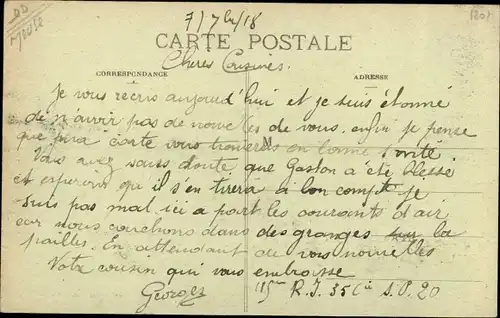 7/7bre/18
Meuse
CARTE POSTALE
Cheres Cousines.
CORRESPONDANCE
ADRESSE
Je vous recris aujourd'hui et je suis étonné
de n'avoir pas de nouvelles de vous. enfin je pense
que ma carte vous trouveras en bonne santé.
Vous avez sans doute que Gaston a été blessé
et esperons qu'il s'en tirera à bon compte je
suis pas mal ici a part les courants d'air
car nous couchons dans des granges sur la
pailles. En attendant de vos nouvelles
Votre cousin qui vous embrasse
Georges 115eme R.I. 35 Cie S.P. 20